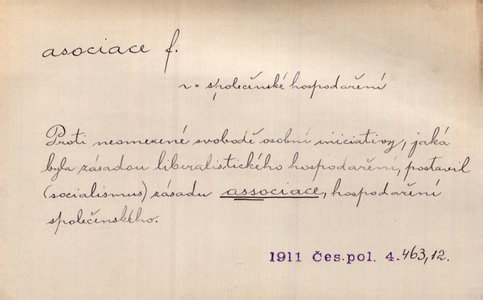 asociace f.
r = společenské hospodaření
Proti neomezené svobodě osobní iniciativy, jaká
byla zásadou liberalistického hospodaření, postavil
(socialismus) zásadu associace, hospodaření
společenského.
1911 Čes. pol. 4. 463,12.